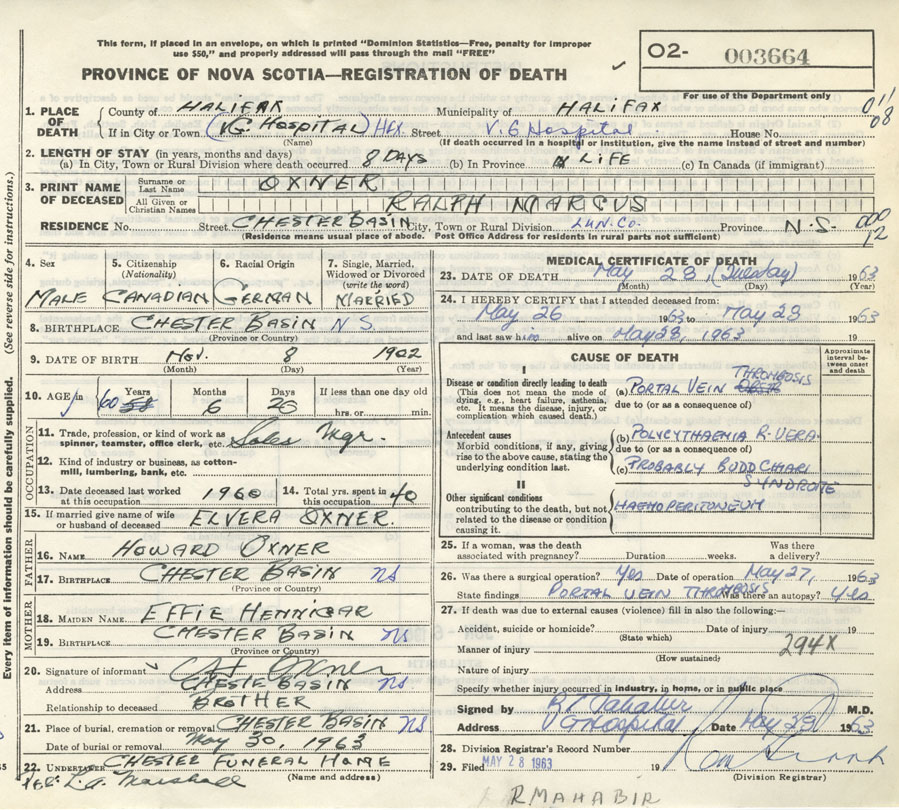 This form, if placed in an envelope, on which is printed "Dominion Statistics—Free, penalty for improper
use $50," and properly addressed will pass through the mail "FREE"
PROVINCE OF NOVA SCOTIA—REGISTRATION OF DEATH
O2- 003664
For use of the Department only
011
08
1. PLACE OF DEATH
County of HALIFAX Municipality of HALIFAX
If in City or Town (V.G. Hospital) Hfx Street V.G Hospital House No.
(Name) (If death occurred in a hospital or institution, give the name instead of street and number)
2. LENGTH OF STAY (in years, months and days)
(a) In City, Town or Rural Division where death occurred 8 DAYS (b) In Province LIFE (c) In Canada (if immigrant)
3. PRINT NAME OF DECEASED
Surname or Last Name OXNER
All Given or Christian Names RALPH MARCUS
RESIDENCE No. Street CHESTER BASIN City, Town or Rural Division LUN. CO. Province N.S.
000
12
(Residence means usual place of abode. Post Office Address for residents in rural parts not sufficient)
(See reverse side for instructions.)
Every item of information should be carefully supplied.
4. Sex 5. Citizenship (Nationality) 6. Racial Origin 7. Single, Married, Widowed or Divorced (write the word)
MALE CANADIAN GERMAN MARRIED
8. BIRTHPLACE CHESTER BASIN N S.
(Province or Country)
9. DATE OF BIRTH Nov. 8 1902
(Month) (Day) (Year)
10. AGE in Years Months Days If less than one day old
60 6 20 hrs. or min.
OCCUPATION
11. Trade, profession, or kind of work as spinner, teamster, office clerk, etc. Sales Mgr.
12. Kind of industry or business, as cotton-mill, lumbering, bank, etc.
13. Date deceased last worked at this occupation 1960 14. Total yrs. spent in this occupation 40
15. If married give name of wife or husband of deceased ELVERA OXNER.
FATHER
16. NAME HOWARD OXNER
17. BIRTHPLACE CHESTER BASIN NS
(Province or Country)
MOTHER
18. MAIDEN NAME EFFIE HENNIGAR
19. BIRTHPLACE CHESTER BASIN NS
(Province or Country)
20. Signature of informant Oxner
Address CHESTER BASIN NS.
Relationship to deceased BROTHER
21. Place of burial, cremation or removal CHESTER BASIN NS
Date of burial or removal May 30, 1963
22. UNDERTAKER CHESTER FUNERAL HOME
(Name and address)
Per: L.A. Marshall
MEDICAL CERTIFICATE OF DEATH
23. DATE OF DEATH May 28 (Tuesday) 1963
(Month) (Day) (Year)
24. I HEREBY CERTIFY that I attended deceased from:
May 26 1963 to May 28 1963
and last saw him alive on May 28, 1963
CAUSE OF DEATH
Approximate interval between onset and death
I
Disease or condition directly leading to death
(This does not mean the mode of dying, e.g., heart failure, asthenia, etc. It means the disease, injury, or complication which caused death.)
(a) PORTAL VEIN THROMBOSIS
due to (or as a consequence of)
Antecedent causes
Morbid conditions, if any, giving rise to the above cause, stating the underlying condition last.
(b) POLYCYTHAEMIA R. VERA
due to (or as a consequence of)
(c) PROBABLY BUDD CHIARI SYNDROME
II
Other significant conditions
contributing to the death, but not related to the disease or condition causing it.
HAEMOPERITONEUM
25. If a woman, was the death associated with pregnancy? Duration weeks. Was there a delivery?
26. Was there a surgical operation? Yes Date of operation May 27, 1963
State findings PORTAL VEIN THROMBOSIS Was there an autopsy? Yes
27. If death was due to external causes (violence) fill in also the following:—
Accident, suicide or homicide? Date of injury 19
(State which)
Manner of injury 294X
(How sustained)
Nature of injury
Specify whether injury occurred in industry, in home, or in public place
Signed by R Mahabir M.D.
Address VG Hospital Date May 29 1963
28. Division Registrar's Record Number
29. Filed MAY 28 1963 19
(Division Registrar)
R MAHABIR